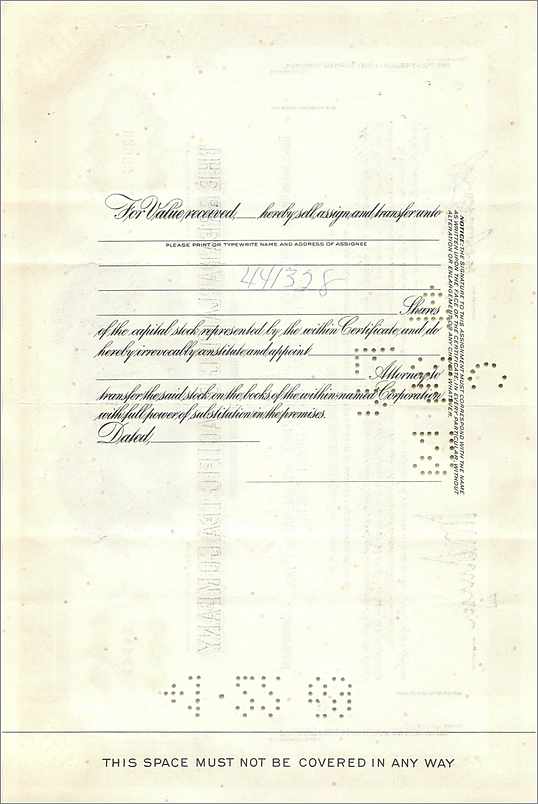 For Value received, ___ hereby sell, assign and transfer unto
PLEASE PRINT OR TYPEWRITE NAME AND ADDRESS OF ASSIGNEE
441328
Shares
of the capital stock represented by the within Certificate, and do
hereby irrevocably constitute and appoint
Attorney to
transfer the said stock on the books of the within-named Corporation
with full power of substitution in the premises.
Dated,
NOTICE: THE SIGNATURE TO THIS ASSIGNMENT MUST CORRESPOND WITH THE NAME
AS WRITTEN UPON THE FACE OF THE CERTIFICATE, IN EVERY PARTICULAR, WITHOUT
ALTERATION OR ENLARGEMENT, OR ANY CHANGE WHATEVER.
THIS SPACE MUST NOT BE COVERED IN ANY WAY